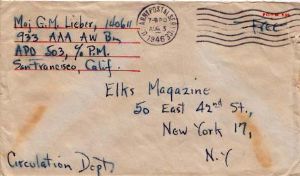 Maj G.M. Lieber, 140611
933 AAA AW Bn
APO 503, c/o P.M.
San Francisco, Calif.
U.S. ARMY POSTAL SERVICE
APO
AUG 3
1946
Free
Elks Magazine
50 East 42nd St.,
New York 17,
N.Y
Circulation Dept